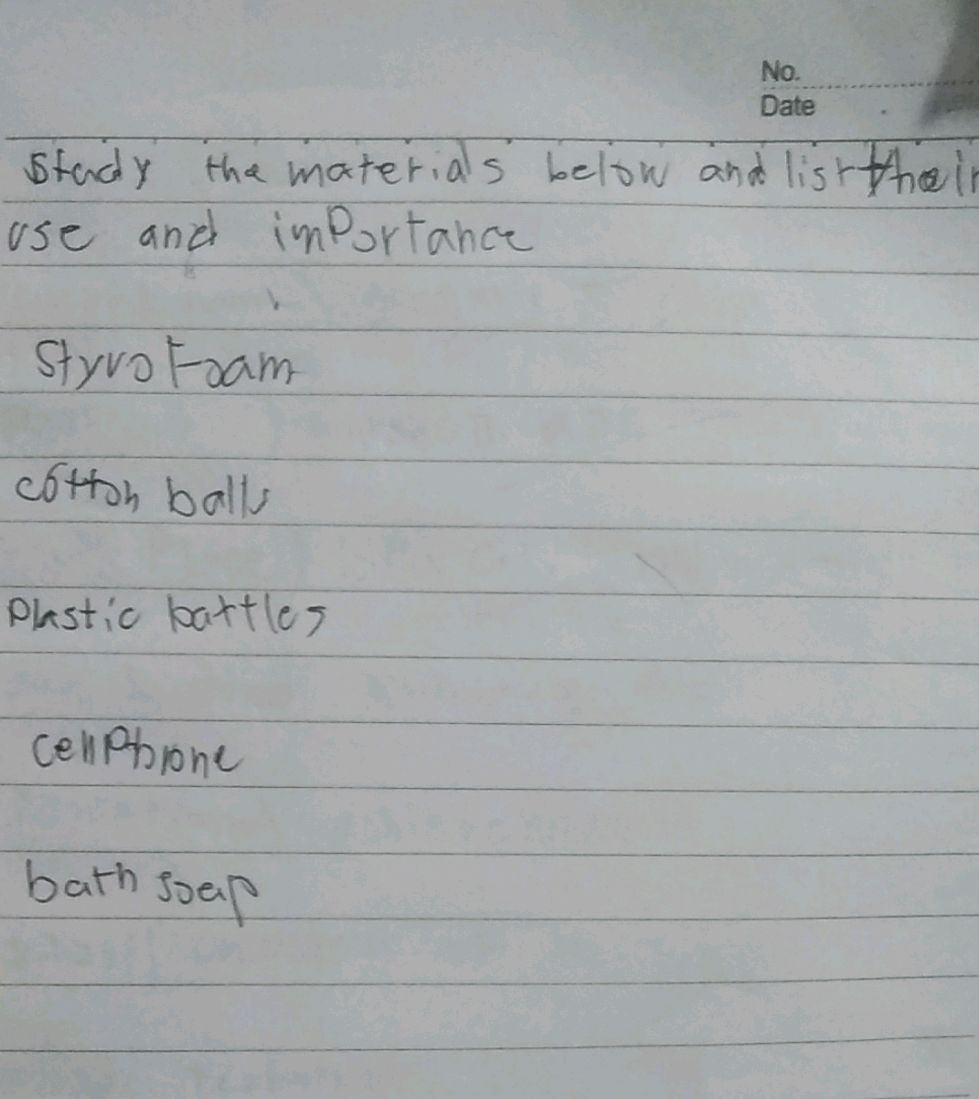 No.
Date
Study the materials below and list their
use and importance
Styrofoam
cotton balls
Plastic bottles
cellphone
bath soap